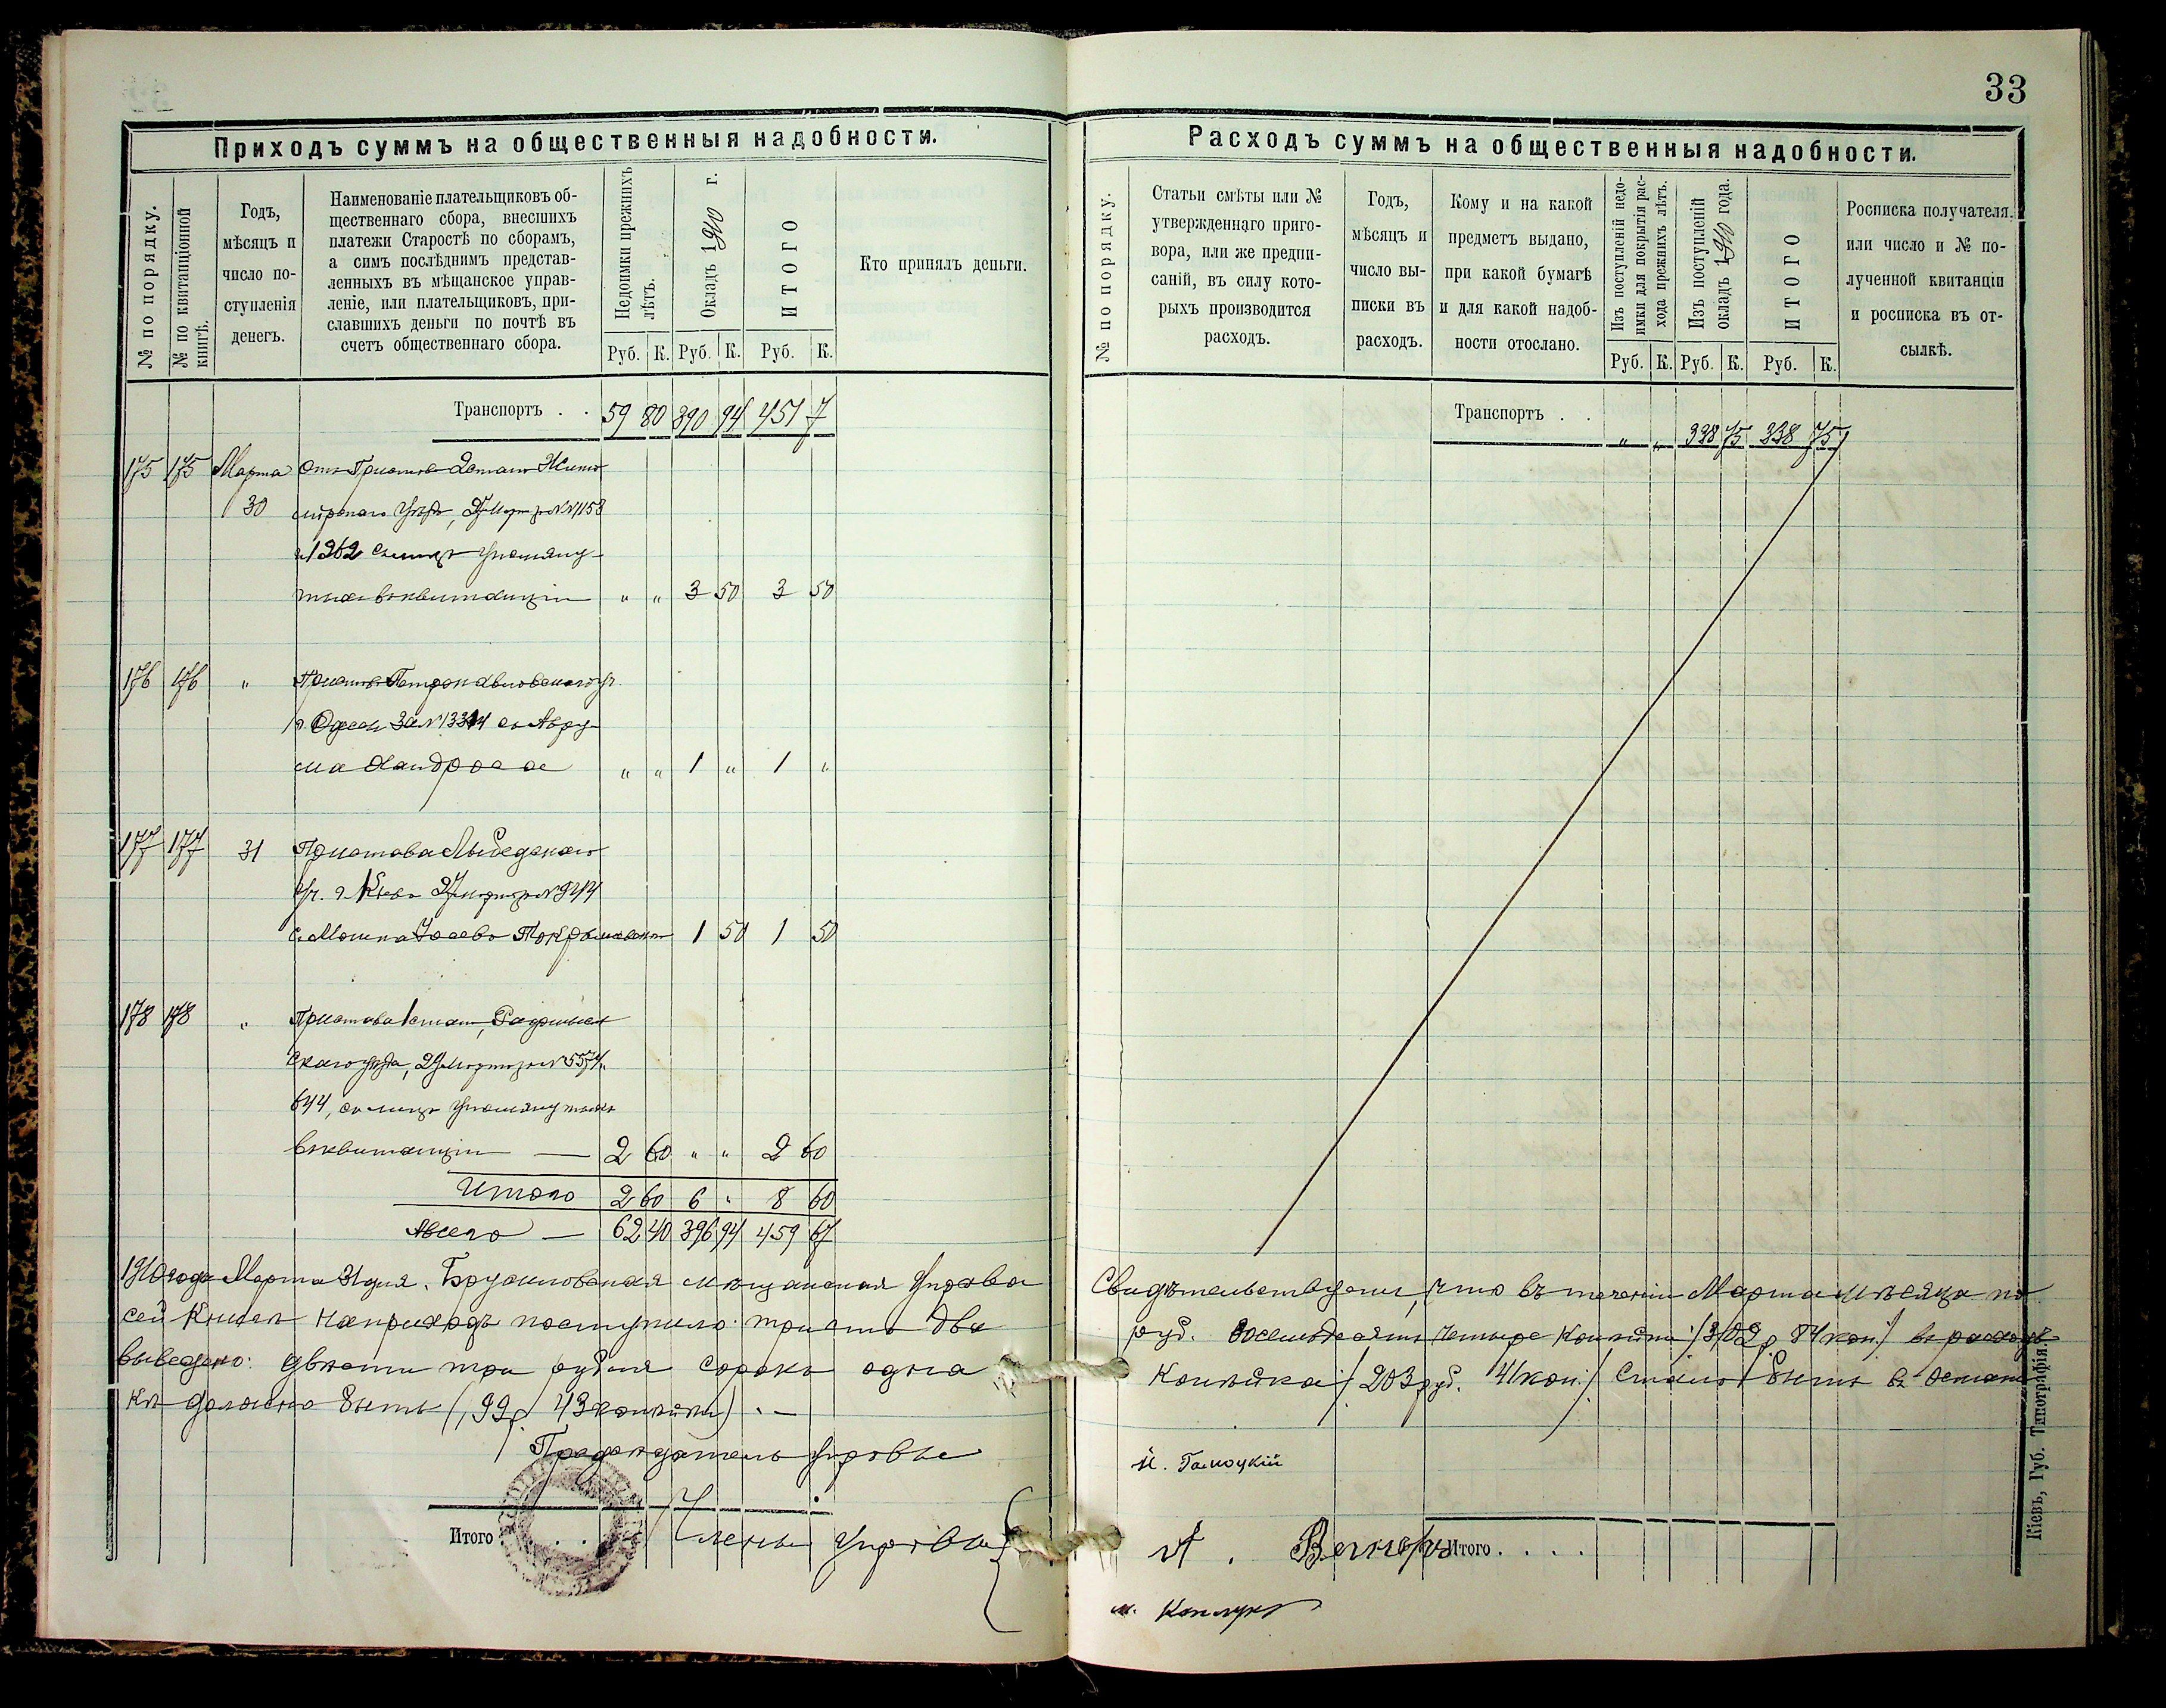 33
Приходъ суммъ на общественныя надобности.
№ по порядку.
№ по квитанціонной книгѣ.
Годъ,
мѣсяцъ и
число по-
ступленія
денегъ.
Наименованіе плательщиковъ об-
щественнаго сбора, внесшихъ
платежи Старостѣ по сборамъ,
а симъ послѣднимъ представ-
ленныхъ въ мѣщанское управ-
леніе, или плательщиковъ, при-
славшихъ деньги по почтѣ въ
счетъ общественнаго сбора.
Недоимки прежнихъ лѣтъ.
Окладъ 1910 г.
ИТОГО
Кто принялъ деньги.
Руб. К. Руб. К. Руб. К.
Транспортъ . . 59 80 390 94 451 7
175 175 Марта Отъ Пристава 2 стана Жито
30 мірскаго уѣзда, 27 Марта за №№ 1153
и 1262 съ лицъ упомяну-
тыхъ въ квитанціи " " 3 50 3 50
176 176 " Пристава Петропавловскаго уч.
г. Одессы за № 13314 съ Авру-
ма " " 1 " 1 "
177 177 31 Пристава Лыбедскаго
уч. г. Кіева 27 Марта за № 9244
съ Мошка 1 50 1 50
178 178 " Пристава 1 стана, Радомысл
скаго уѣзда, 29 Марта за № 5574
644, съ лицъ упомянутыхъ
въ квитанціи — 2 60 " " 2 60
Итого 2 60 6 " 8 60
А всего — 62 40 396 94 459 67
1910 года Марта 31 дня. Брусиловская мѣщанская Управа
сей книгѣ на приходъ поступило: триста два
выведено: двѣсти три рубля сорокъ одна
кѣ должно быть (99 р. 43 копѣйки). —
Предсѣдатель Управы
Члены Управы
Итого . . .
Расходъ суммъ на общественныя надобности.
№ по порядку.
Статьи смѣты или №
утвержденнаго приго-
вора, или же предпи-
саній, въ силу кото-
рыхъ производится
расходъ.
Годъ,
мѣсяцъ и
число вы-
писки въ
расходъ.
Кому и на какой
предметъ выдано,
при какой бумагѣ
и для какой надоб-
ности отослано.
Изъ поступленій недо-
имки для покрытія рас-
хода прежнихъ лѣтъ.
Изъ поступленій
окладъ 1910 года.
ИТОГО
Росписка получателя.
или число и № по-
лученной квитанціи
и росписка въ от-
сылкѣ.
Руб. К. Руб. К. Руб. К.
Транспортъ . . " " 338 75 338 75
Свидѣтельствуетъ, что въ теченіи Марта мѣсяца по
руб. восемьдесятъ четыре копѣйки /302 р. 84 коп./ въ расходъ
копѣйка /203 руб. 41 коп./ Стало быть въ остат
А. Вегнеръ
Итого . . . .
Кіевъ, Губ. Типографія.